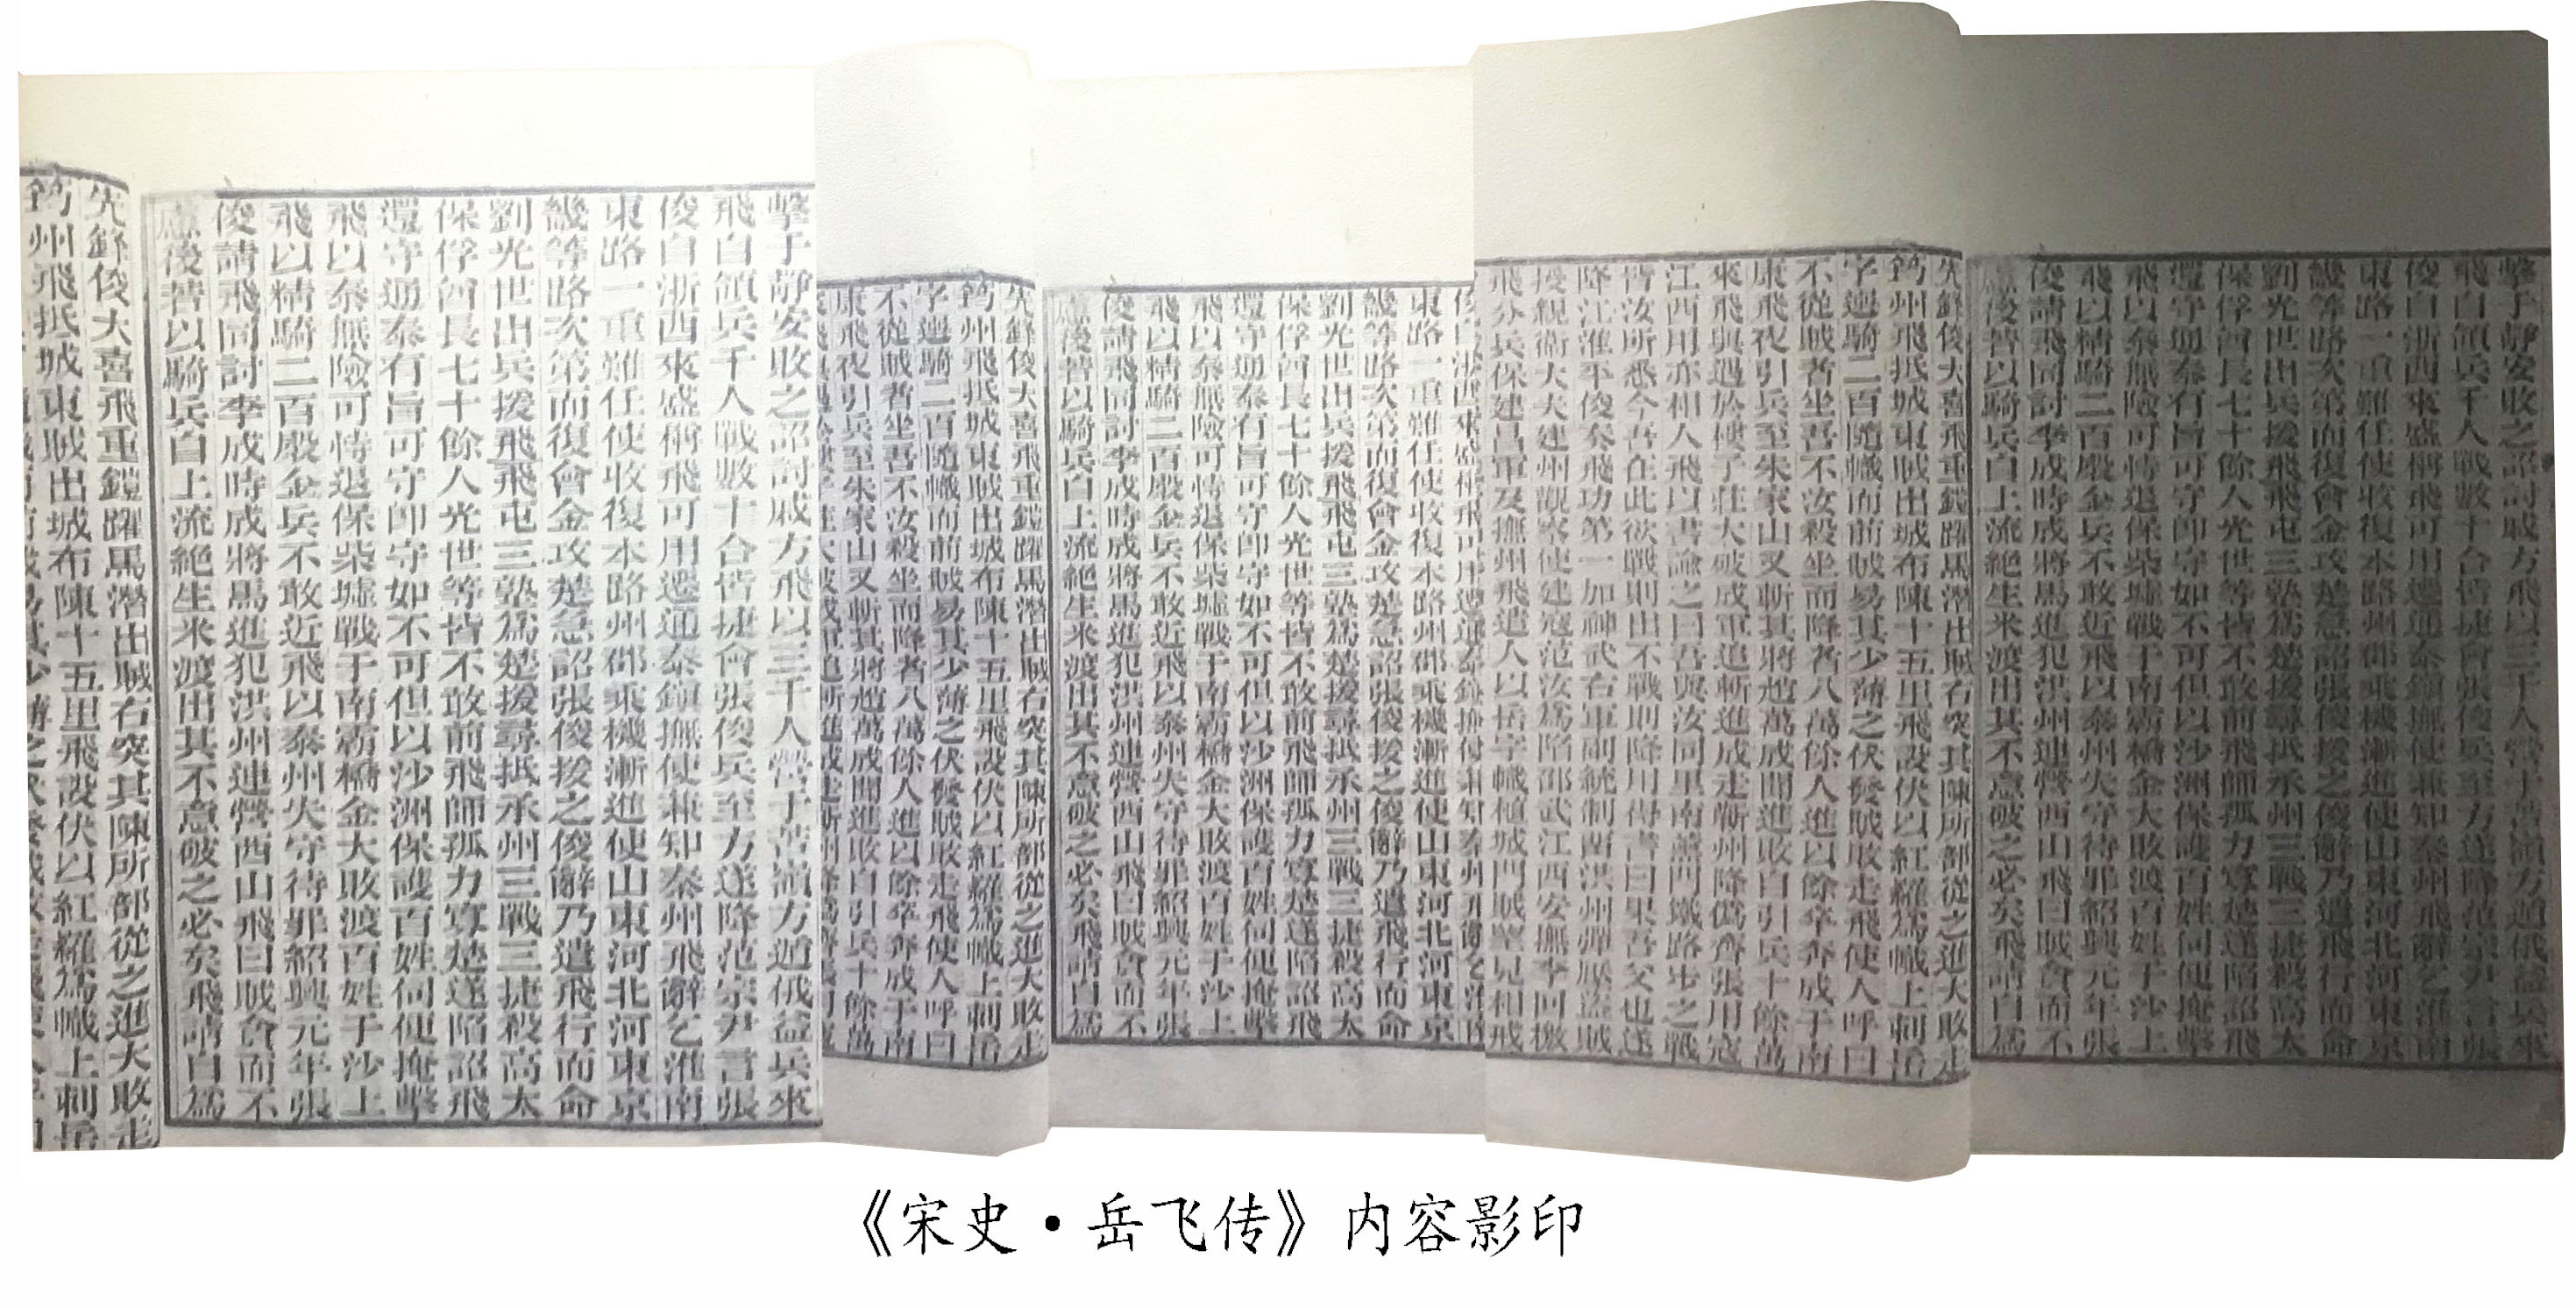 擊于靜安敗之詔討戚方飛以三千人營于苦嶺方遁俄益兵來
飛自領兵千人戰數十合皆捷會張俊兵至方遂降范宗尹言張
俊自浙西來盛稱飛可用遷通泰鎮撫使兼知泰州飛辭乞淮南
東路一重難任使收復本路州郡乘機漸進使山東河北河東京
畿等路次第而復會金攻楚急詔張俊援之俊辭乃遣飛行而命
劉光世出兵援飛飛屯三墪爲楚援尋抵承州三戰三捷殺高太
保俘酋長七十餘人光世等皆不敢前飛師孤力寡楚遂陷詔飛
還守通泰有旨可守即守如不可但以沙洲保護百姓伺便掩擊
飛以泰無險可恃退保柴墟戰于南霸橋金大敗渡百姓于沙上
飛以精騎二百殿金兵不敢近飛以泰州失守待罪紹興元年張
俊請飛同討李成時成將馬進犯洪州連營西山飛曰賊貪而不
慮後若以騎兵自上流絕生米渡出其不意破之必矣飛請自爲
先鋒俊大喜飛重鎧躍馬潛出賊右突其陳所部從之進大敗走
筠州飛抵城東賊出城布陳十五里飛設伏以紅羅爲幟上刺岳
字選騎二百隨幟而前賊易其少薄之伏發賊敗走飛使人呼曰
不從賊者坐吾不汝殺坐而降者八萬餘人進以餘卒奔成于南
康飛夜引兵至朱家山又斬其將趙萬成聞進敗自引兵十餘萬
來飛與遇於樓子莊大破成軍追斬進成走蘄州降僞齊張用寇
江西用亦相人飛以書諭之曰吾與汝同里南薰門鐵路步之戰
皆汝所悉今吾在此欲戰則出不戰則降用得書曰果吾父也遂
降江淮平俊奏飛功第一加神武右軍副統制留洪州彈壓盜賊
授親衛大夫建州觀察使建寇范汝爲陷邵武江西安撫李回檄
飛分兵保建昌軍及撫州飛遣人以岳字幟植城門賊望見相戒
俊自浙西來盛稱飛可用遷通泰鎮撫使兼知泰州飛辭乞淮南
東路一重難任使收復本路州郡乘機漸進使山東河北河東京
畿等路次第而復會金攻楚急詔張俊援之俊辭乃遣飛行而命
劉光世出兵援飛飛屯三墪爲楚援尋抵承州三戰三捷殺高太
保俘酋長七十餘人光世等皆不敢前飛師孤力寡楚遂陷詔飛
還守通泰有旨可守即守如不可但以沙洲保護百姓伺便掩擊
飛以泰無險可恃退保柴墟戰于南霸橋金大敗渡百姓于沙上
飛以精騎二百殿金兵不敢近飛以泰州失守待罪紹興元年張
俊請飛同討李成時成將馬進犯洪州連營西山飛曰賊貪而不
慮後若以騎兵自上流絕生米渡出其不意破之必矣飛請自爲
先鋒俊大喜飛重鎧躍馬潛出賊右突其陳所部從之進大敗走
筠州飛抵城東賊出城布陳十五里飛設伏以紅羅爲幟上刺岳
字選騎二百隨幟而前賊易其少薄之伏發賊敗走飛使人呼曰
不從賊者坐吾不汝殺坐而降者八萬餘人進以餘卒奔成于南
康飛夜引兵至朱家山又斬其將趙萬成聞進敗自引兵十餘萬
擊于靜安敗之詔討戚方飛以三千人營于苦嶺方遁俄益兵來
飛自領兵千人戰數十合皆捷會張俊兵至方遂降范宗尹言張
俊自浙西來盛稱飛可用遷通泰鎮撫使兼知泰州飛辭乞淮南
東路一重難任使收復本路州郡乘機漸進使山東河北河東京
畿等路次第而復會金攻楚急詔張俊援之俊辭乃遣飛行而命
劉光世出兵援飛飛屯三墪爲楚援尋抵承州三戰三捷殺高太
保俘酋長七十餘人光世等皆不敢前飛師孤力寡楚遂陷詔飛
還守通泰有旨可守即守如不可但以沙洲保護百姓伺便掩擊
飛以泰無險可恃退保柴墟戰于南霸橋金大敗渡百姓于沙上
飛以精騎二百殿金兵不敢近飛以泰州失守待罪紹興元年張
俊請飛同討李成時成將馬進犯洪州連營西山飛曰賊貪而不
慮後若以騎兵自上流絕生米渡出其不意破之必矣飛請自爲
先鋒俊大喜飛重鎧躍馬潛出賊右突其陳所部從之進大敗走
筠州飛抵城東賊出城布陳十五里飛設伏以紅羅爲幟上刺岳
《宋史·岳飞传》内容影印